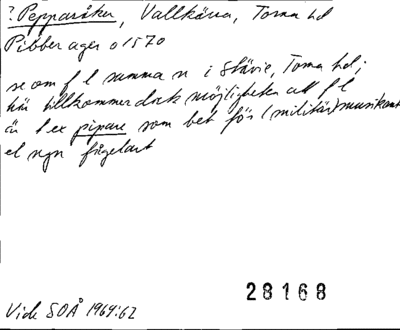 ? Pepparåker, Vallkärra, Torna hd
Pibber ager o 1570
se om f l samma n i Stävie, Torna hd;
här tillkommer dock möjligheten att f l
är t ex pipare som bet för (militär)musikant
el ngn fågelart
28168
Vide SOÅ 1964:62